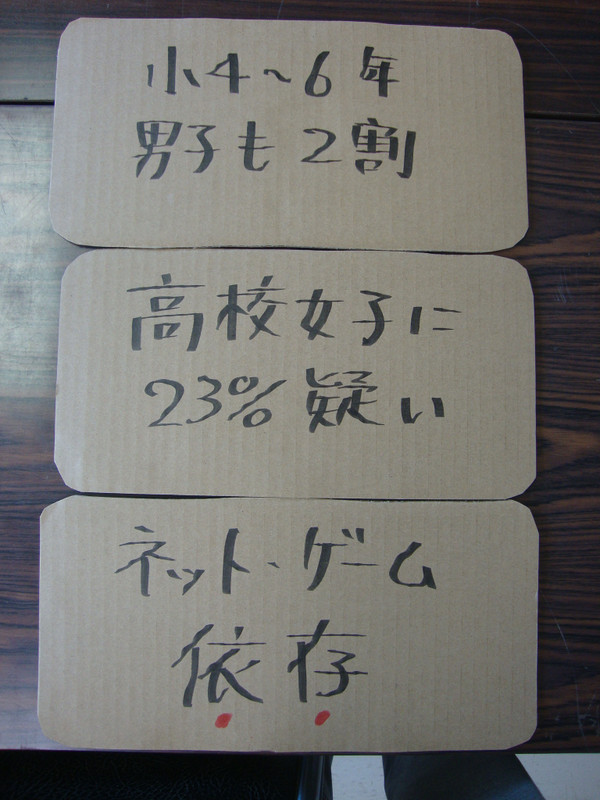 小4~6年
男子も2割
高校女子に
23%疑い
ネット・ゲーム
依存